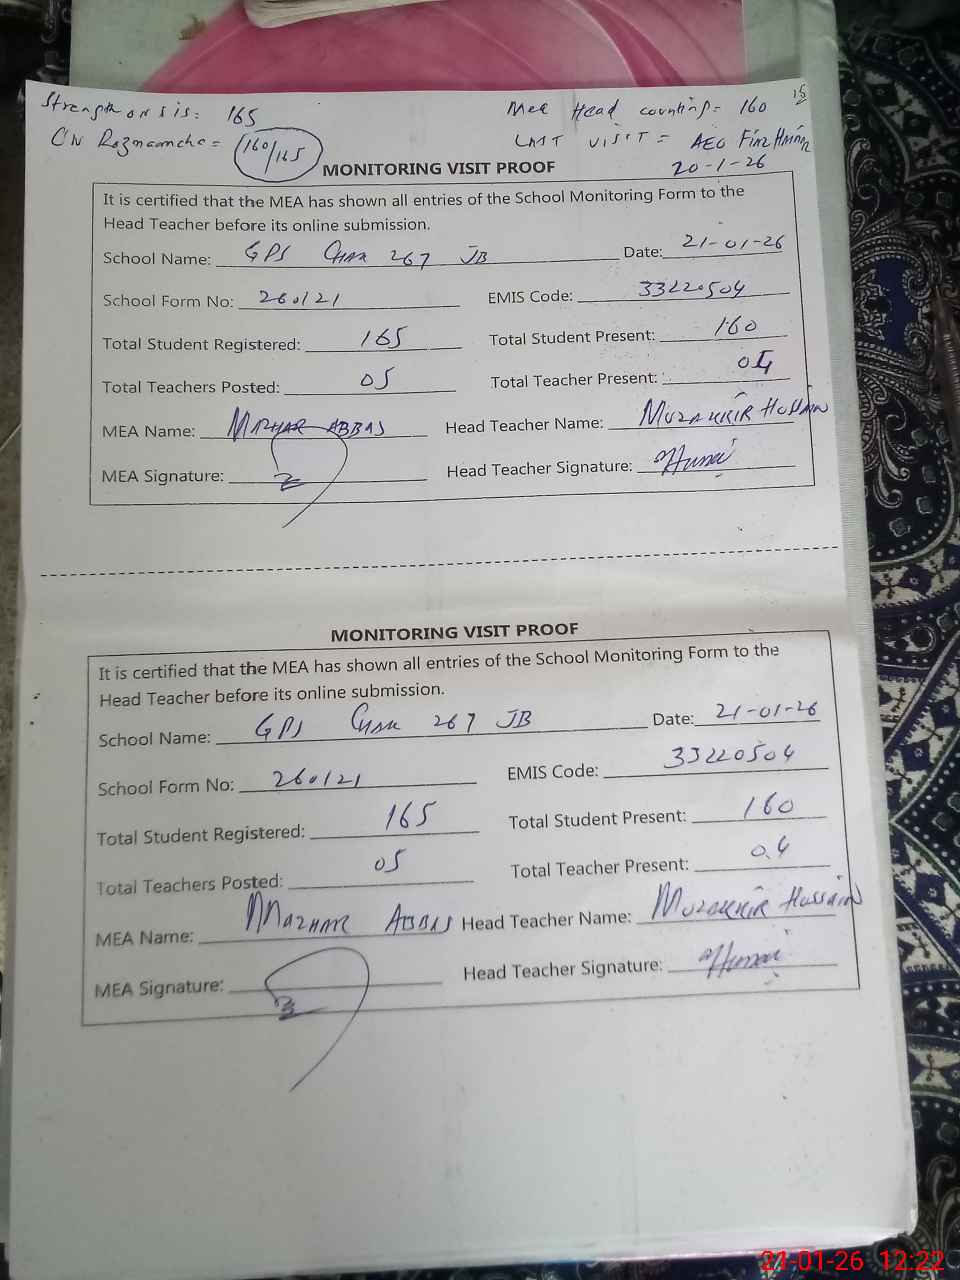 Strength on sis: 165
Mea Head counting = 160
15
ON Roznamcha = 160/165
LAST VISIT = AEO
20-1-26
MONITORING VISIT PROOF
It is certified that the MEA has shown all entries of the School Monitoring Form to the
Head Teacher before its online submission.
School Name: GPS Chak 267 JB Date: 21-01-26
School Form No: 260121 EMIS Code: 33220504
Total Student Registered: 165 Total Student Present: 160
Total Teachers Posted: 05 Total Teacher Present: 04
MEA Name: MAZHAR ABBAS Head Teacher Name: MUZAKKIR HUSSAIN
MEA Signature: Head Teacher Signature:
MONITORING VISIT PROOF
It is certified that the MEA has shown all entries of the School Monitoring Form to the
Head Teacher before its online submission.
School Name: GPS Chak 267 JB Date: 21-01-26
School Form No: 260121 EMIS Code: 33220504
Total Student Registered: 165 Total Student Present: 160
Total Teachers Posted: 05 Total Teacher Present: 04
MEA Name: MAZHAR ABBAS Head Teacher Name: MUZAKKIR Hussain
MEA Signature: Head Teacher Signature:
21-01-26 12:22